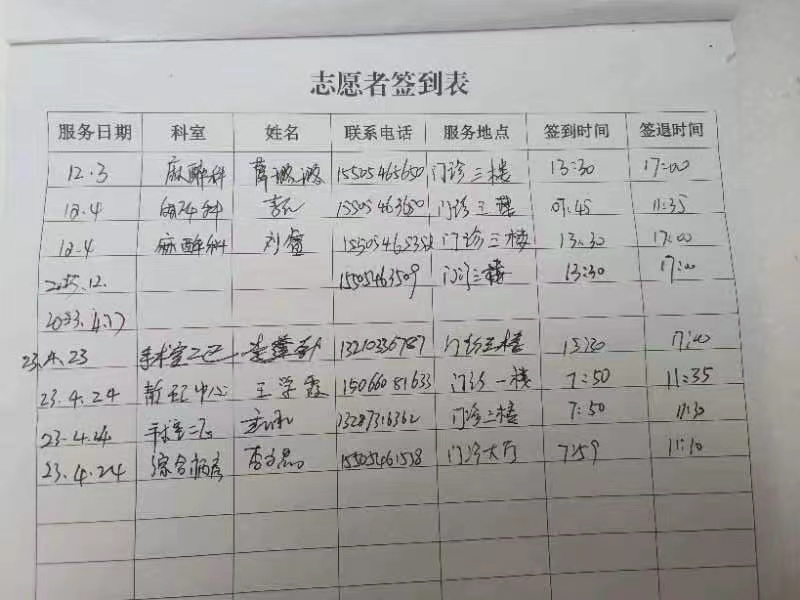 志愿者签到表
服务日期 科室 姓名 联系电话 服务地点 签到时间 签退时间
12.3 麻醉科 15505465650 门诊三楼 13:30 17:00
12.4 15505463650 门诊三楼 07:45 11:35
12.4 麻醉科 刘 门诊三楼 13:30 17:00
15505463509 门诊三楼 13:30 17:00
23.4.23 手术室二区 13210336787 门诊三楼 17:00
23.4.24 中心 王学霞 15066081633 门诊一楼 7:50 11:35
23.4.24 手术室 13287316362 门诊二楼 7:50 11:30
23.4.24 综合病房 李 15505461538 门诊大厅 759 11:10